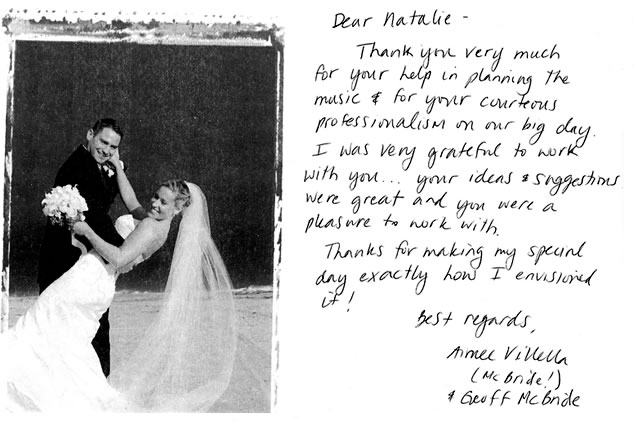 Dear Natalie -
Thank you very much
for your help in planning the
music & for your courteous
professionalism on our big day.
I was very grateful to work
with you... your ideas & suggestions
were great and you were a
pleasure to work with.
Thanks for making my special
day exactly how I envisioned
it!
Best regards,
Aimee Villella
(McBride!)
& Geoff McBride